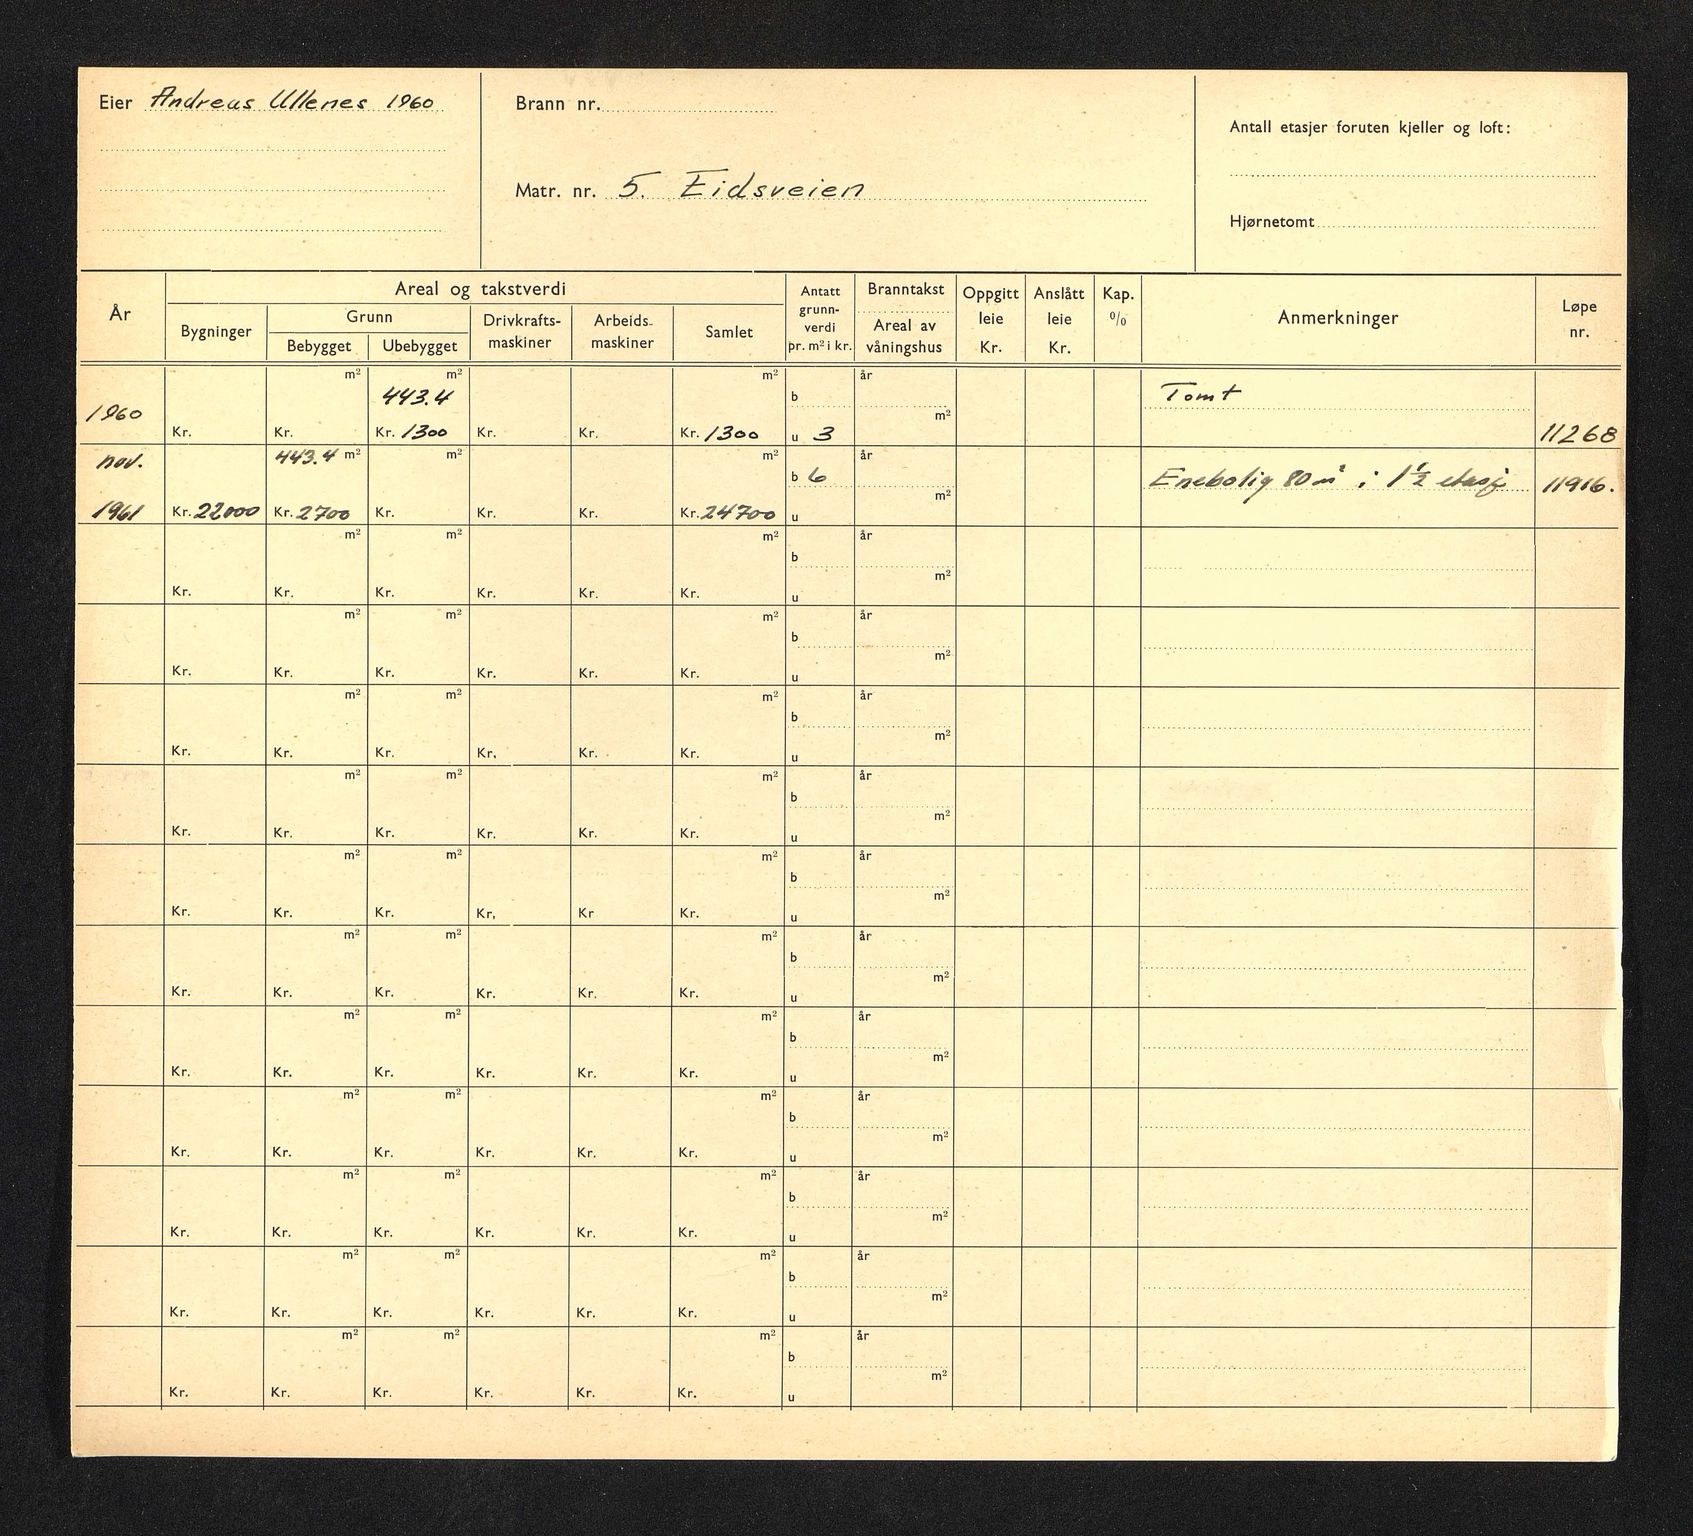 Eier Andreas Ullenes 1960
Brann nr.
Matr. nr. 5. Eidsveien
Antall etasjer foruten kjeller og loft:
Hjørnetomt
År
Areal og takstverdi
Bygninger
Grunn
Bebygget Ubebygget
Drivkrafts-
maskiner
Arbeids-
maskiner
Samlet
Antatt
grunn-
verdi
pr. m² i kr.
Branntakst
Areal av
våningshus
Oppgitt
leie
Kr.
Anslått
leie
Kr.
Kap.
%
Anmerkninger
Løpe
nr.
m² m² m² år
443.4 b Tomt
1960 m²
Kr. Kr. Kr. 1300 Kr. Kr. Kr. 1300 u 3 11268
nov. 443.4 m² m² m² år
b 6 Enebolig 80 m² i 1½ etasje 11916.
m²
1961 Kr. 22000 Kr. 2700 Kr. Kr. Kr. Kr. 24700 u
m² m² m² år
b
m²
Kr. Kr. Kr. Kr. Kr. Kr. u
m² m² m² år
b
m²
Kr. Kr. Kr. Kr. Kr. Kr. u
m² m² m² år
b
m²
Kr. Kr. Kr. Kr. Kr. Kr. u
m² m² m² år
b
m²
Kr. Kr. Kr. Kr. Kr. Kr. u
m² m² m² år
b
m²
Kr. Kr. Kr. Kr, Kr Kr. u
m² m² m² år
b
m²
Kr. Kr. Kr. Kr. Kr. Kr. u
m² m² m² år
b
m²
Kr. Kr. Kr. Kr. Kr. Kr. u
m² m² m² år
b
m²
Kr. Kr. Kr. Kr. Kr. Kr. u
m² m² m² år
b
m²
Kr. Kr. Kr. Kr. Kr. Kr. u
m² m² m² år
b
m²
Kr. Kr. Kr. Kr. Kr. Kr. u
m² m² m² år
b
m²
Kr. Kr. Kr. Kr. Kr. Kr. u